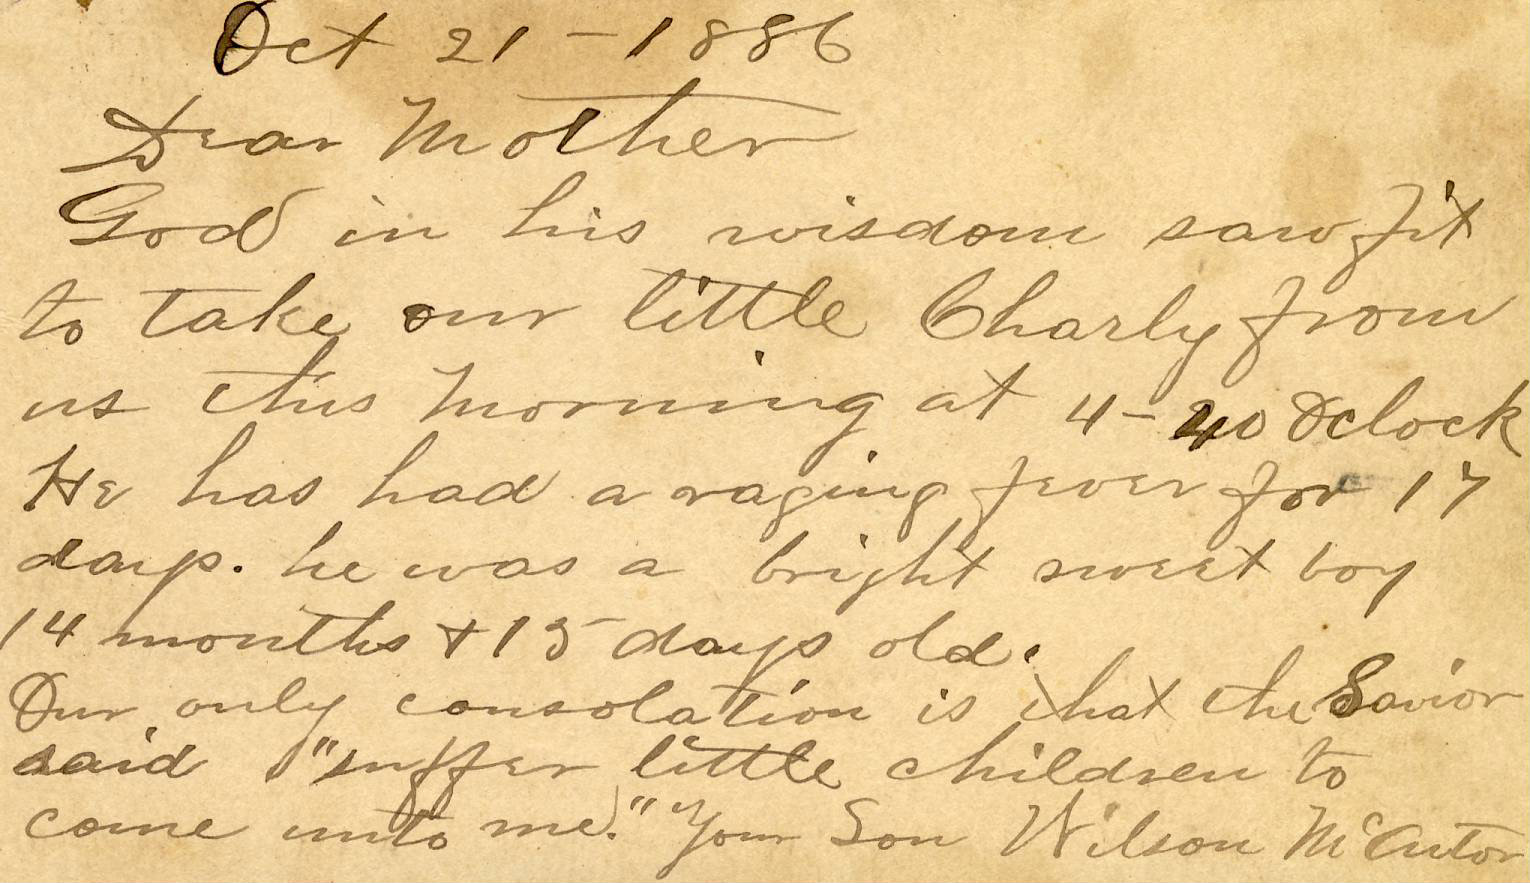 Oct 21 - 1886
Dear Mother
God in his wisdom saw fit
to take our little Charly from
us this morning at 4-20 Oclock
He has had a raging fever for 17
days. he was a bright sweet boy
14 months + 15 days old.
Our only consolation is that the Savior
said "suffer little children to
come unto me." Your Son Wilson